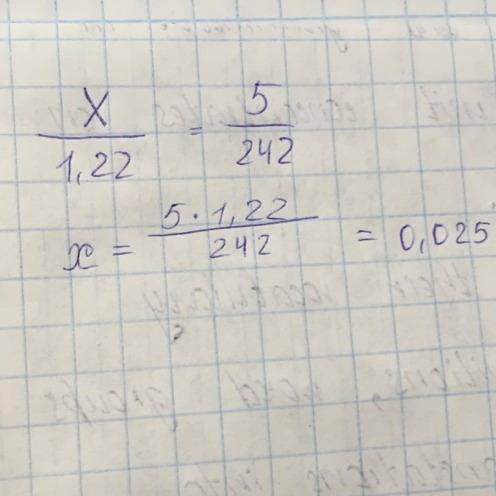 X/1,22 = 5/242
x = 5·1,22/242 = 0,025